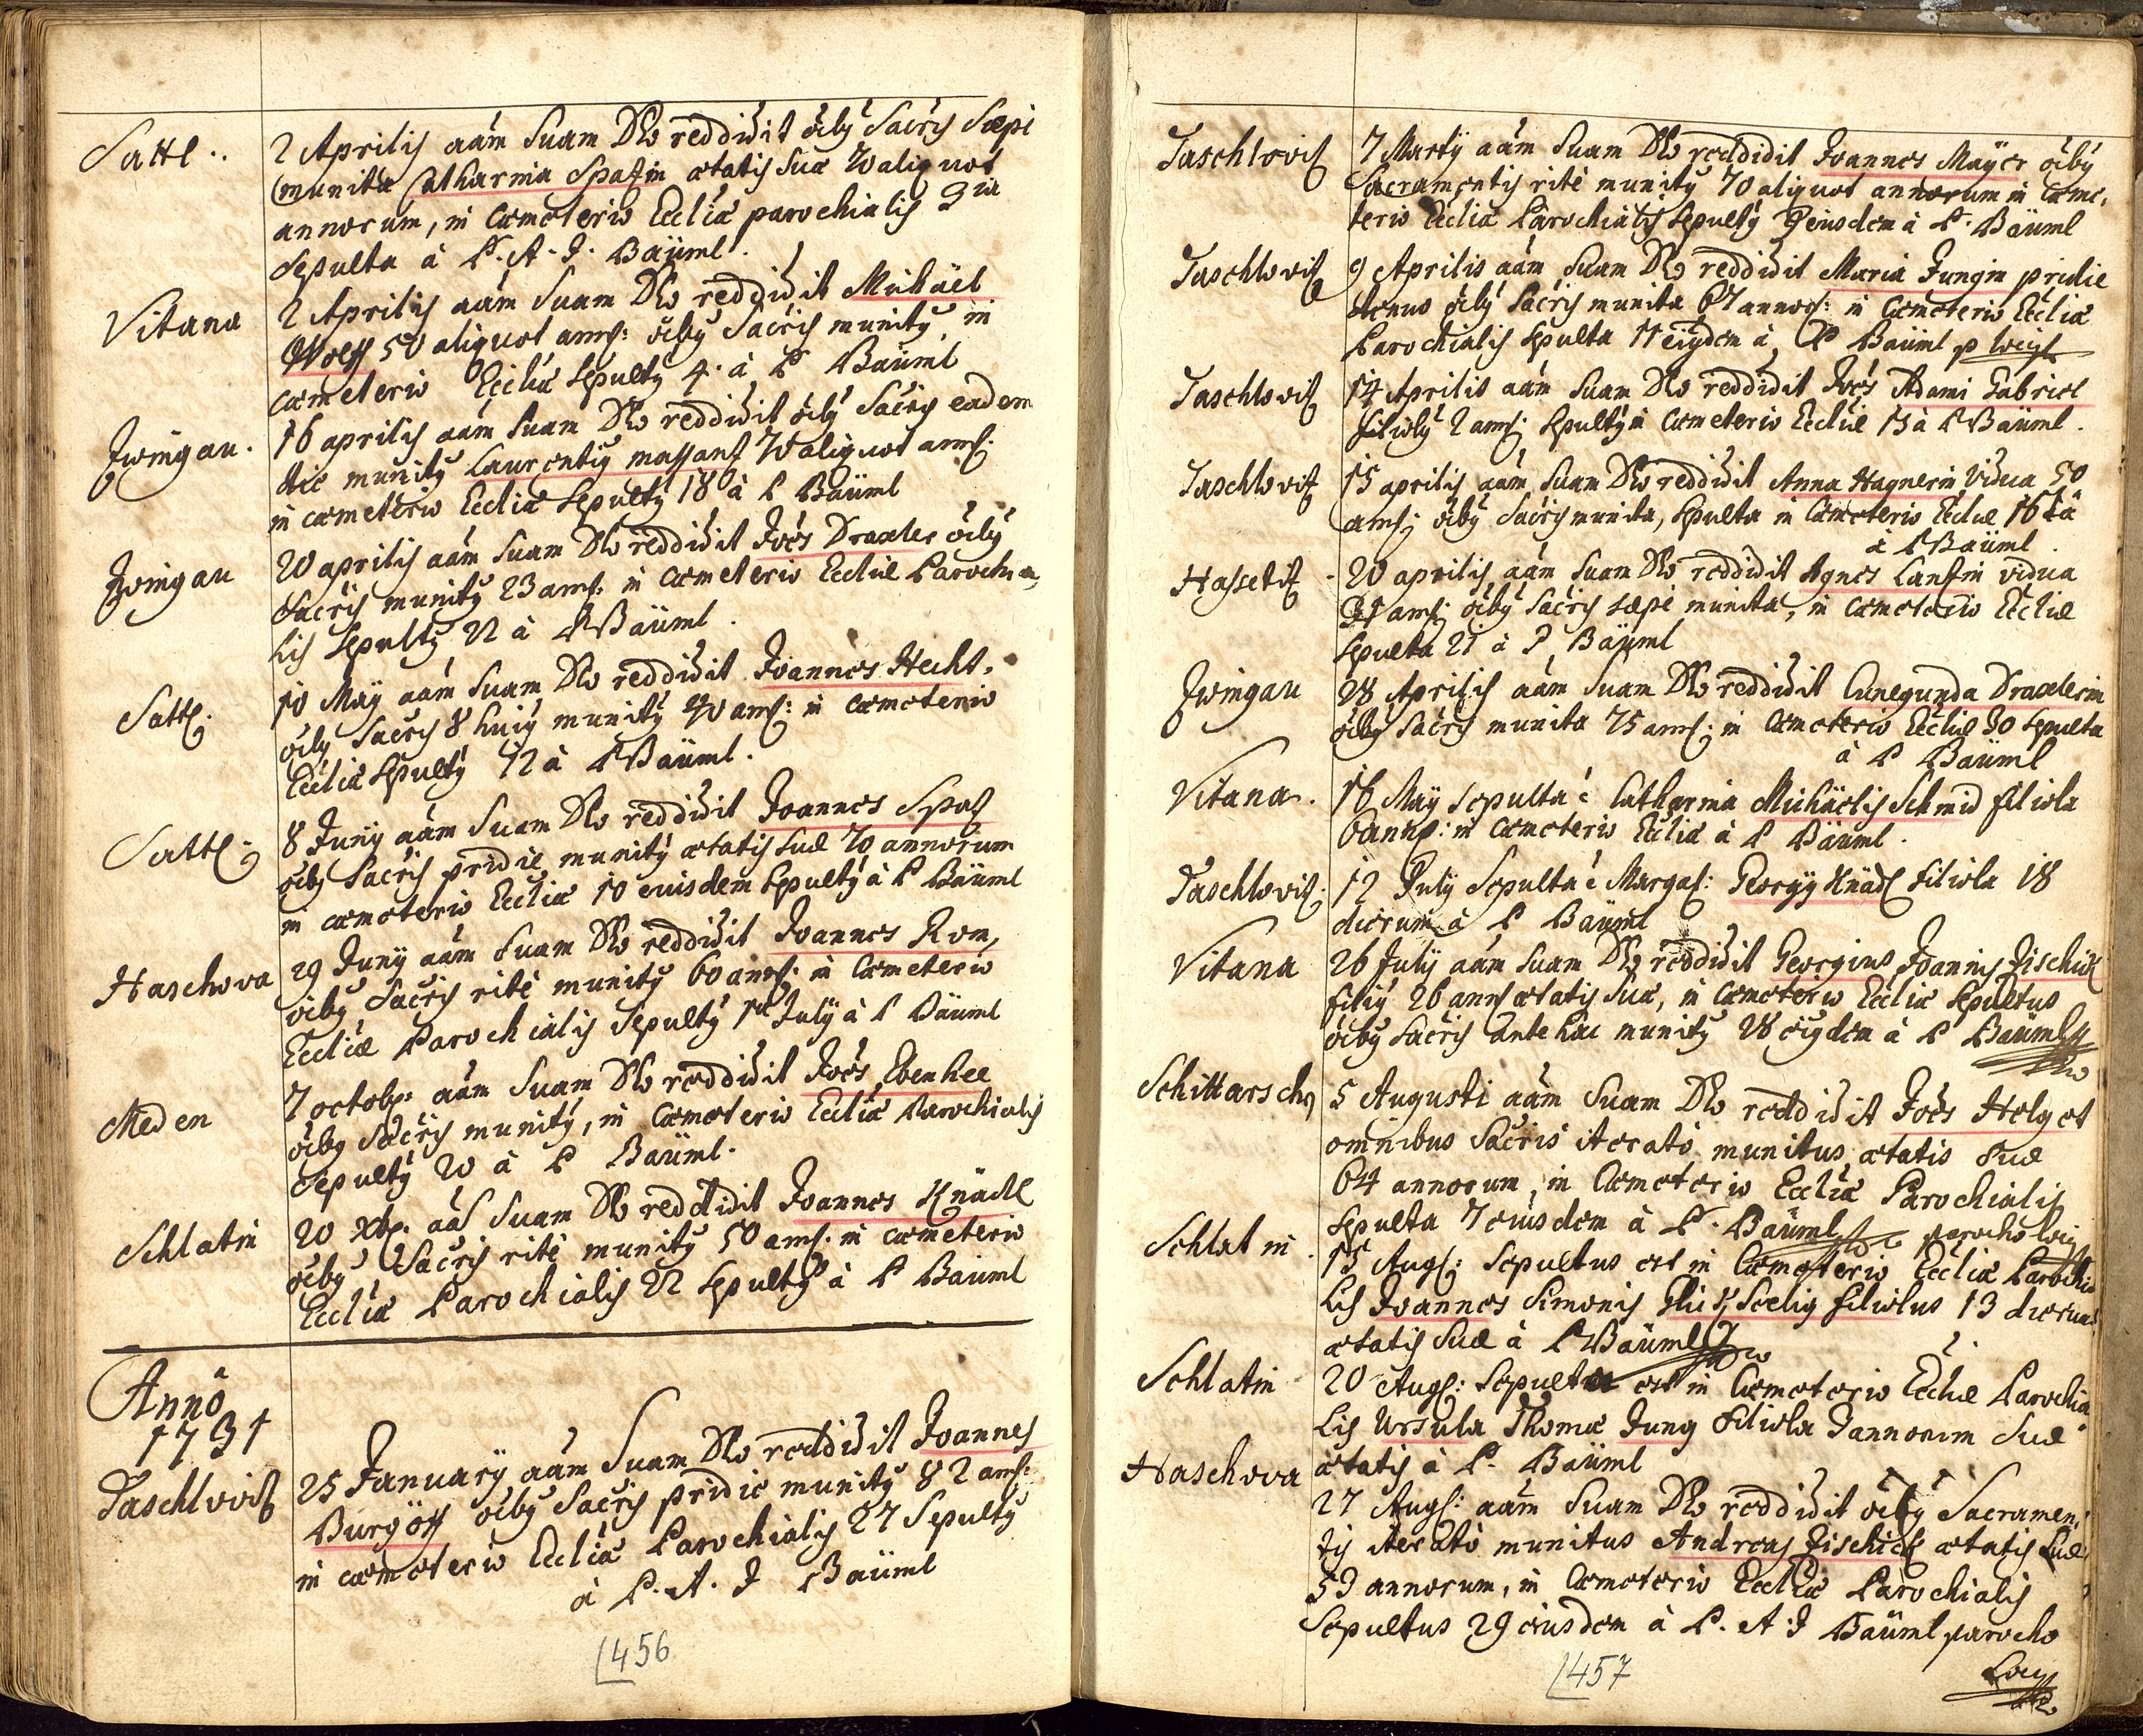 Sattl..
2 Aprilis aãm Suam Dło reddidit õiby Sacris Sæpe
munita Catharina Spatzin ætatis Suæ 70 aliquot
annorum, in Cœmeterio Eccliæ parochialis 3 tia
Sepulta à P. A. J. Baüml.
Vitana
2 Aprilis aãm Suam Dło reddidit Michaël
Wolff 50 aliquot anns: õiby Sacris munity, in
cœmeterio Eccliæ Sepulty 4. à P Baüml
Zwingau.
16 aprilis aãm Suam Dło reddidit õiby Sacris eadem
die munity Laurentiy massant 70 aliquot anns:
in cœmeterio Eccliæ Sepulty 18 à P Baüml
Zwingau
20 aprilis aãm Suam Dło reddidit Joẽs Draxler õiby
Sacris munity 23 anns: in cœmeterio Eccliæ Parochia,
lis Sepulty 22 à P Baüml.
Sattl.
10 Maÿ aãm Suam Dło reddidit Joannes Hecht,
õiby Sacris 8 huiy munity 40 anns: in cœmeterio
Eccliæ Sepulty 12 à P Baüml.
Sattl.
8 Junÿ aãm Suam Dło reddidit Joannes Spatz
õiby Sacris pridie munity ætatis Suæ 70 annorum
in cœmeterio Eccliæ 10 euisdem Sepulty à P Baüml
Haschowa
29 Junÿ aãm Suam Dło reddidit Joannes Rom,
õiby Sacris ritè munity 60 anns: in Cœmeterio
Eccliæ Parochialis Sepulty 1a Julÿ à P Baüml
Meden
7 octobr: aãm Suam Dło reddidit Joẽs Ebenhee
õiby Sacris munity, in Cœmeterio Eccliæ Parochialis
Sepulty 20 à P Baüml.
Schlatin
20 Xbr. aãm Suam Dło reddidit Joannes Knädl
õiby Sacris ritè munity 50 anns. in cœmeterio
Eccliæ Parochialis 22 Sepulty à P Baüml
Annô
1731
Taschlowitz
25 Januarÿ aãm Suam Dło reddidit Joannes
Burgött õiby Sacris pridie munity 82 anns:
in cœmeterio Eccliæ Parochialis 27 Sepulty
à P. A. J Baüml
456
Taschlowitz
7 Martÿ aãm Suam Dło reddidit Joannes Maÿer õiby
Sacramentis ritè munity 70 aliquot annorum in Cœme,
terio Eccliæ Parochialis Sepulty 9 eiusdem à P. Baüml
Taschlowitz
9 Aprilis aãm Suam Dło reddidit Maria Jungin pridie
denuo õiby Sacris munita 67 annor: in Cœmeterio Eccliæ
Parochialis Sepulta 11 eiydem à P Baüml p loci
Taschlowitz
14 Aprilis aãm Suam Dło reddidit Joẽs Adami Gabriel
filioly 2 anns: Sepulty in Cœmeterio Eccliæ 15 à P Baüml.
Taschlowitz
15 aprilis aãm Suam Dło reddidit Anna Hagnerin Vidua 50
anns: õiby Sacris munita, Sepulta in Cœmeterio Eccliæ 16 ta
à P Baüml.
Hassetitz
20 aprilis aãm Suam Dło reddidit Agnes Lantzin vidua
anns: õiby Sacris sæpe munita, in cœmeterio Eccliæ
Sepulta 21 à P Baüml
Zwingau
28 Aprilis aãm Suam Dło reddidit Cunegunda Draxlerin
õiby Sacris munita 75 anns: in Cœmeterio Eccliæ 30 Sepulta
à P Baüml
Vitana.
16 Maÿ Sepulta ẽ Catharina Michaëlis Schmid filiola
6 anns: in Cœmeterio Eccliæ à P Baüml.
Taschlowitz.
12 Julÿ Sepulta ẽ Margar: Georgÿ Knädl filiola 18
dierum à P Baüml
Vitana
26 Julÿ aãm Suam Dło reddidit Georgius Joannis Zischick
filiy 26 ann ætatis Suæ, in Cœmeterio Eccliæ Sepultus
õiby Sacris ante hac munity 28 eiydem à P Baüml
Schittarschn
5 Augusti aãm Suam Dło reddidit Joẽs Helget
omnibus Sacris iteratò munitus ætatis Suæ
64 annorum, in Cœmeterio Eccliæ Parochialis
Sepulta 7 eiusdem à P. Baüml parocho loci
Schlatin.
15 Aug: Sepultus est in Cœmeterio Eccliæ Parochia
lis Joannes Simonis Glückseelig filiolus 13 dierum
ætatis Suæ à P Baüml
Schlatin
20 Aug: Sepulta est in Cœmeterio Eccliæ Parochia
lis Ursula Thomæ Jung filiola 3 annorum Suæ
ætatis à P. Baüml
Haschowa
27 Aug: aãm Suam Dło reddidit õiby Sacramen,
tis iteratò munitus Andreas Zischick ætatis Suæ
53 annorum, in Cœmeterio Eccliæ Parochialis
Sepultus 29 eiusdem à P. A. J Baüml parocho
Loci
457